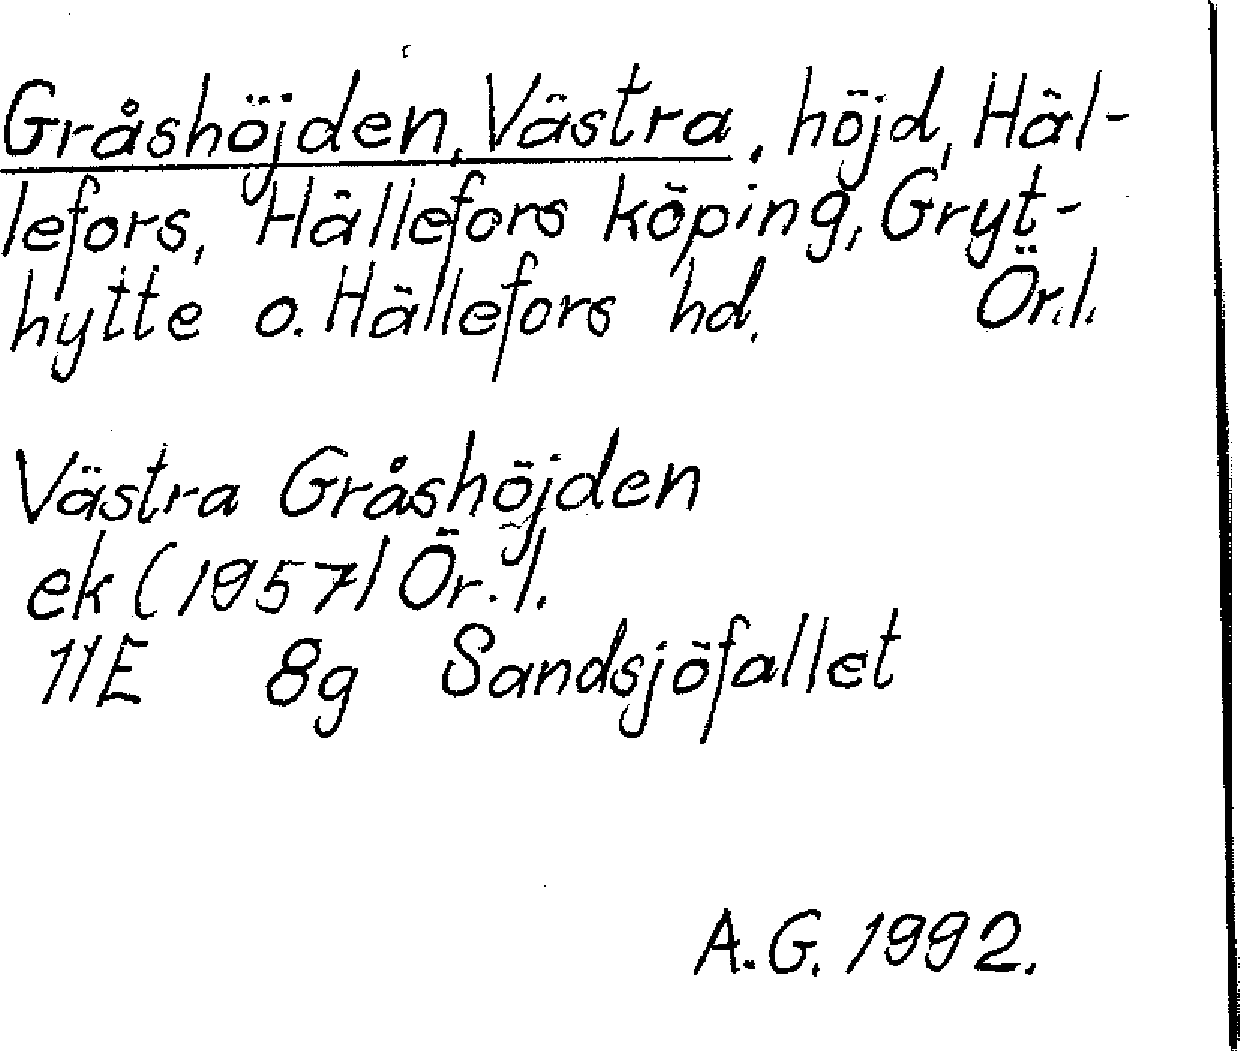 Gråshöjden, Västra, höjd, Häl-
lefors, Hällefors köping, Gryt-
hytte o. Hällefors hd. Ör.l.
Västra Gråshöjden
ek (1957) Ör.l.
11E 8g Sandsjöfallet
A.G. 1992.